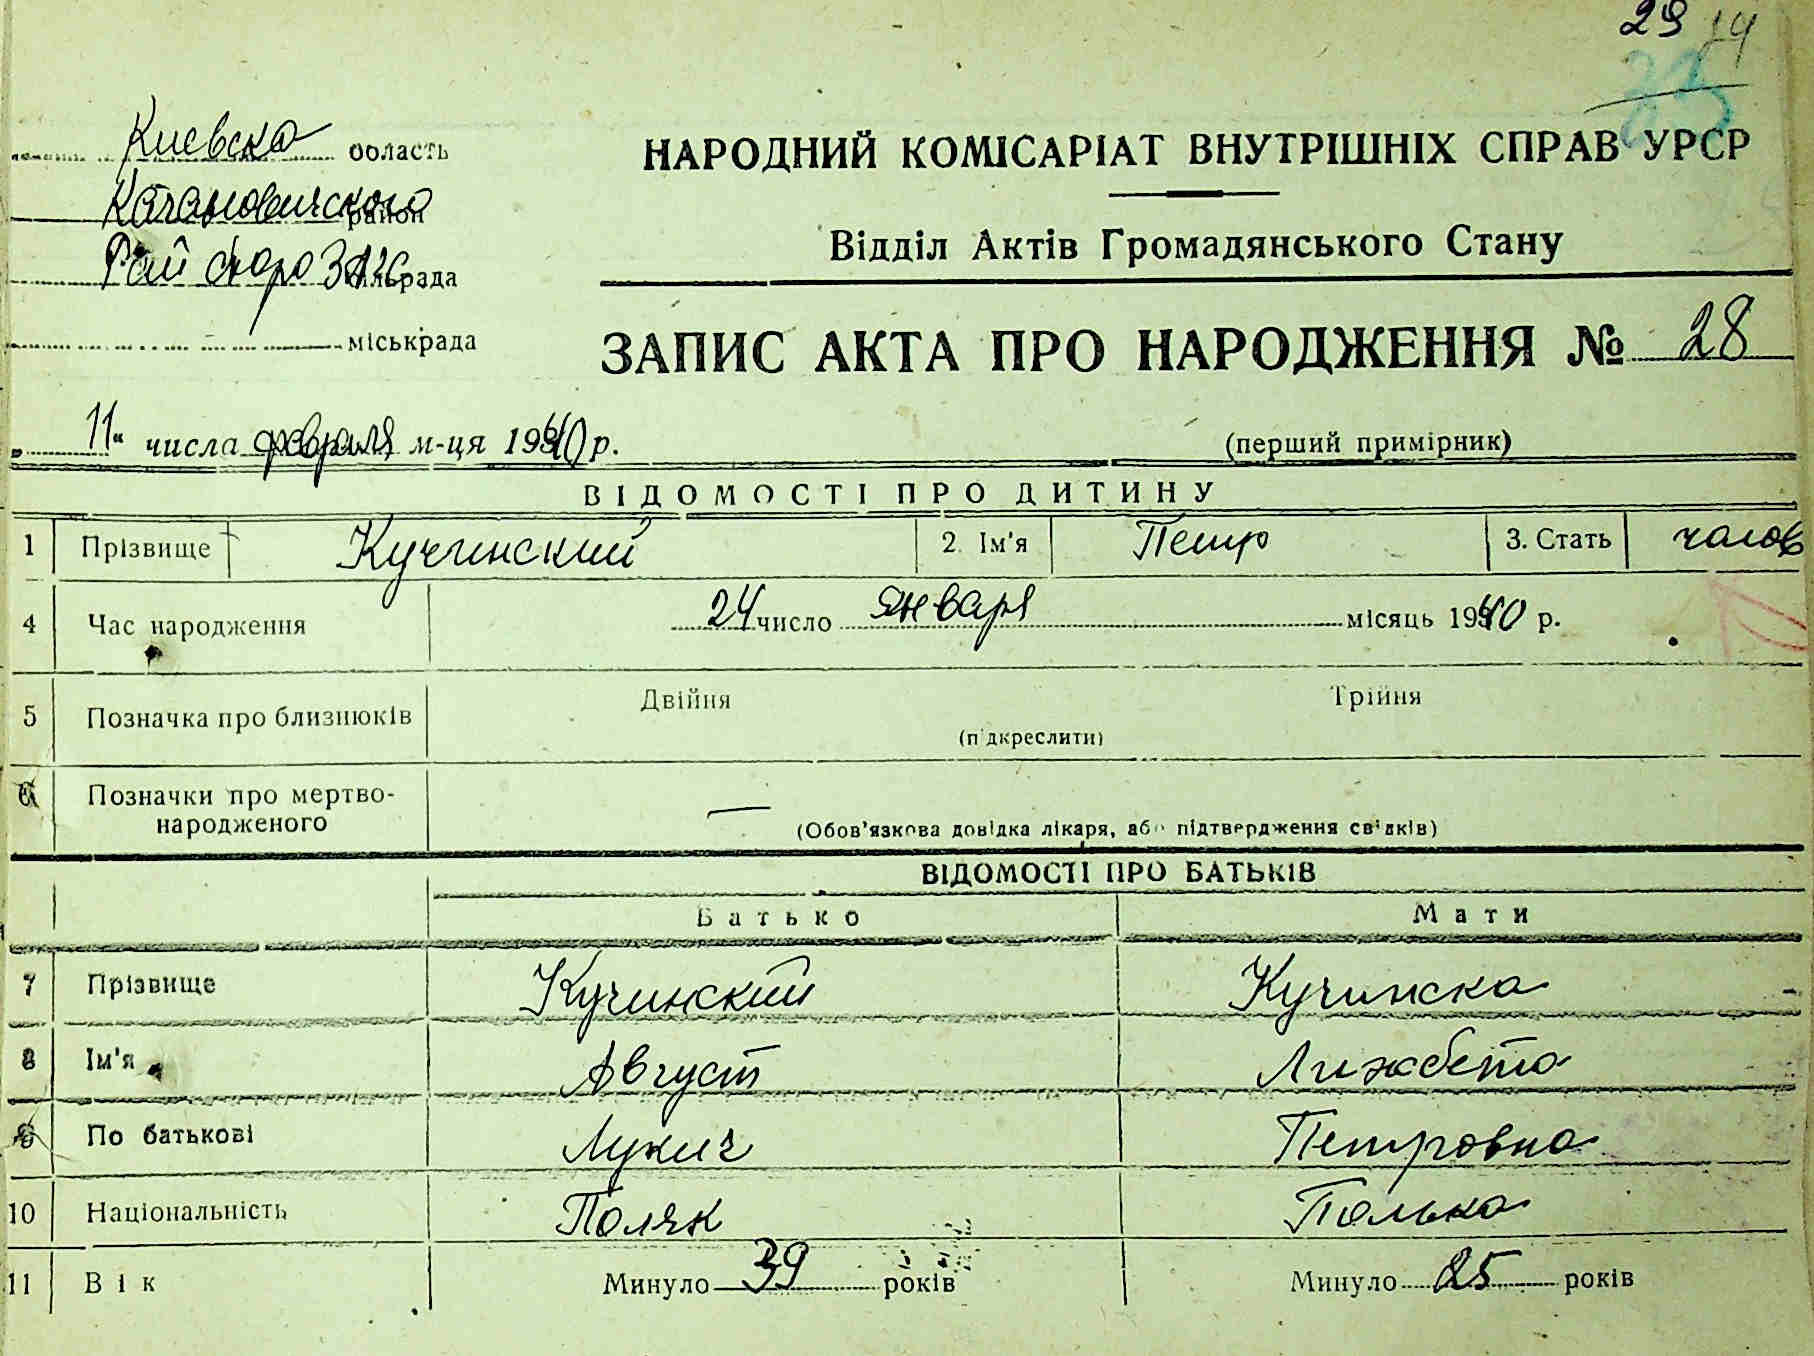 29 14
23
Киевска область
НАРОДНИЙ КОМІСАРІАТ ВНУТРІШНІХ СПРАВ УРСР
Кагановичского район
Відділ Актів Громадянського Стану
Рай бюро ЗАГС сільрада
міськрада
ЗАПИС АКТА ПРО НАРОДЖЕННЯ № 28
„11“ числа февраля м-ця 1940 р.
(перший примірник)
ВІДОМОСТІ ПРО ДИТИНУ
1 Прізвище Кучинский 2. Ім'я Петр 3. Стать чолов
4 Час народження 24 число января місяць 1940 р.
5 Позначка про близнюків Двійня Трійня
(підкреслити)
6 Позначки про мертво-
народженого — (Обов'язкова довідка лікаря, або підтвердження свідків)
ВІДОМОСТІ ПРО БАТЬКІВ
Батько Мати
7 Прізвище Кучинский Кучинска
8 Ім'я Август Лижбета
9 По батькові Лукич Петровна
10 Національність Поляк Полька
11 Вік Минуло 39 років Минуло 25 років